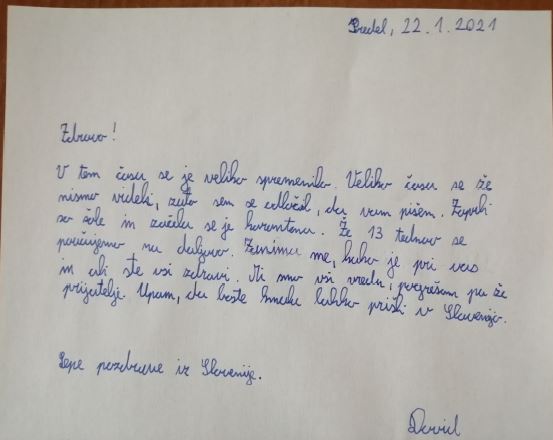 Predel, 22.1.2021
Zdravo!
V tem času se je veliko spremenilo. Veliko časa se že
nismo videli, zato sem se odločil, da vam pišem. Zaprli
so šole in začela se je karantena. Že 13 tednov se
poučujemo na daljavo. Zanima me, kako je pri vas
in ali ste vsi zdravi. Mi smo vsi vredu, pogrešam pa že
prijatelje. Upam, da boste kmalu lahko prišli v Slovenijo.
Lepe pozdrave iz Slovenije.
David